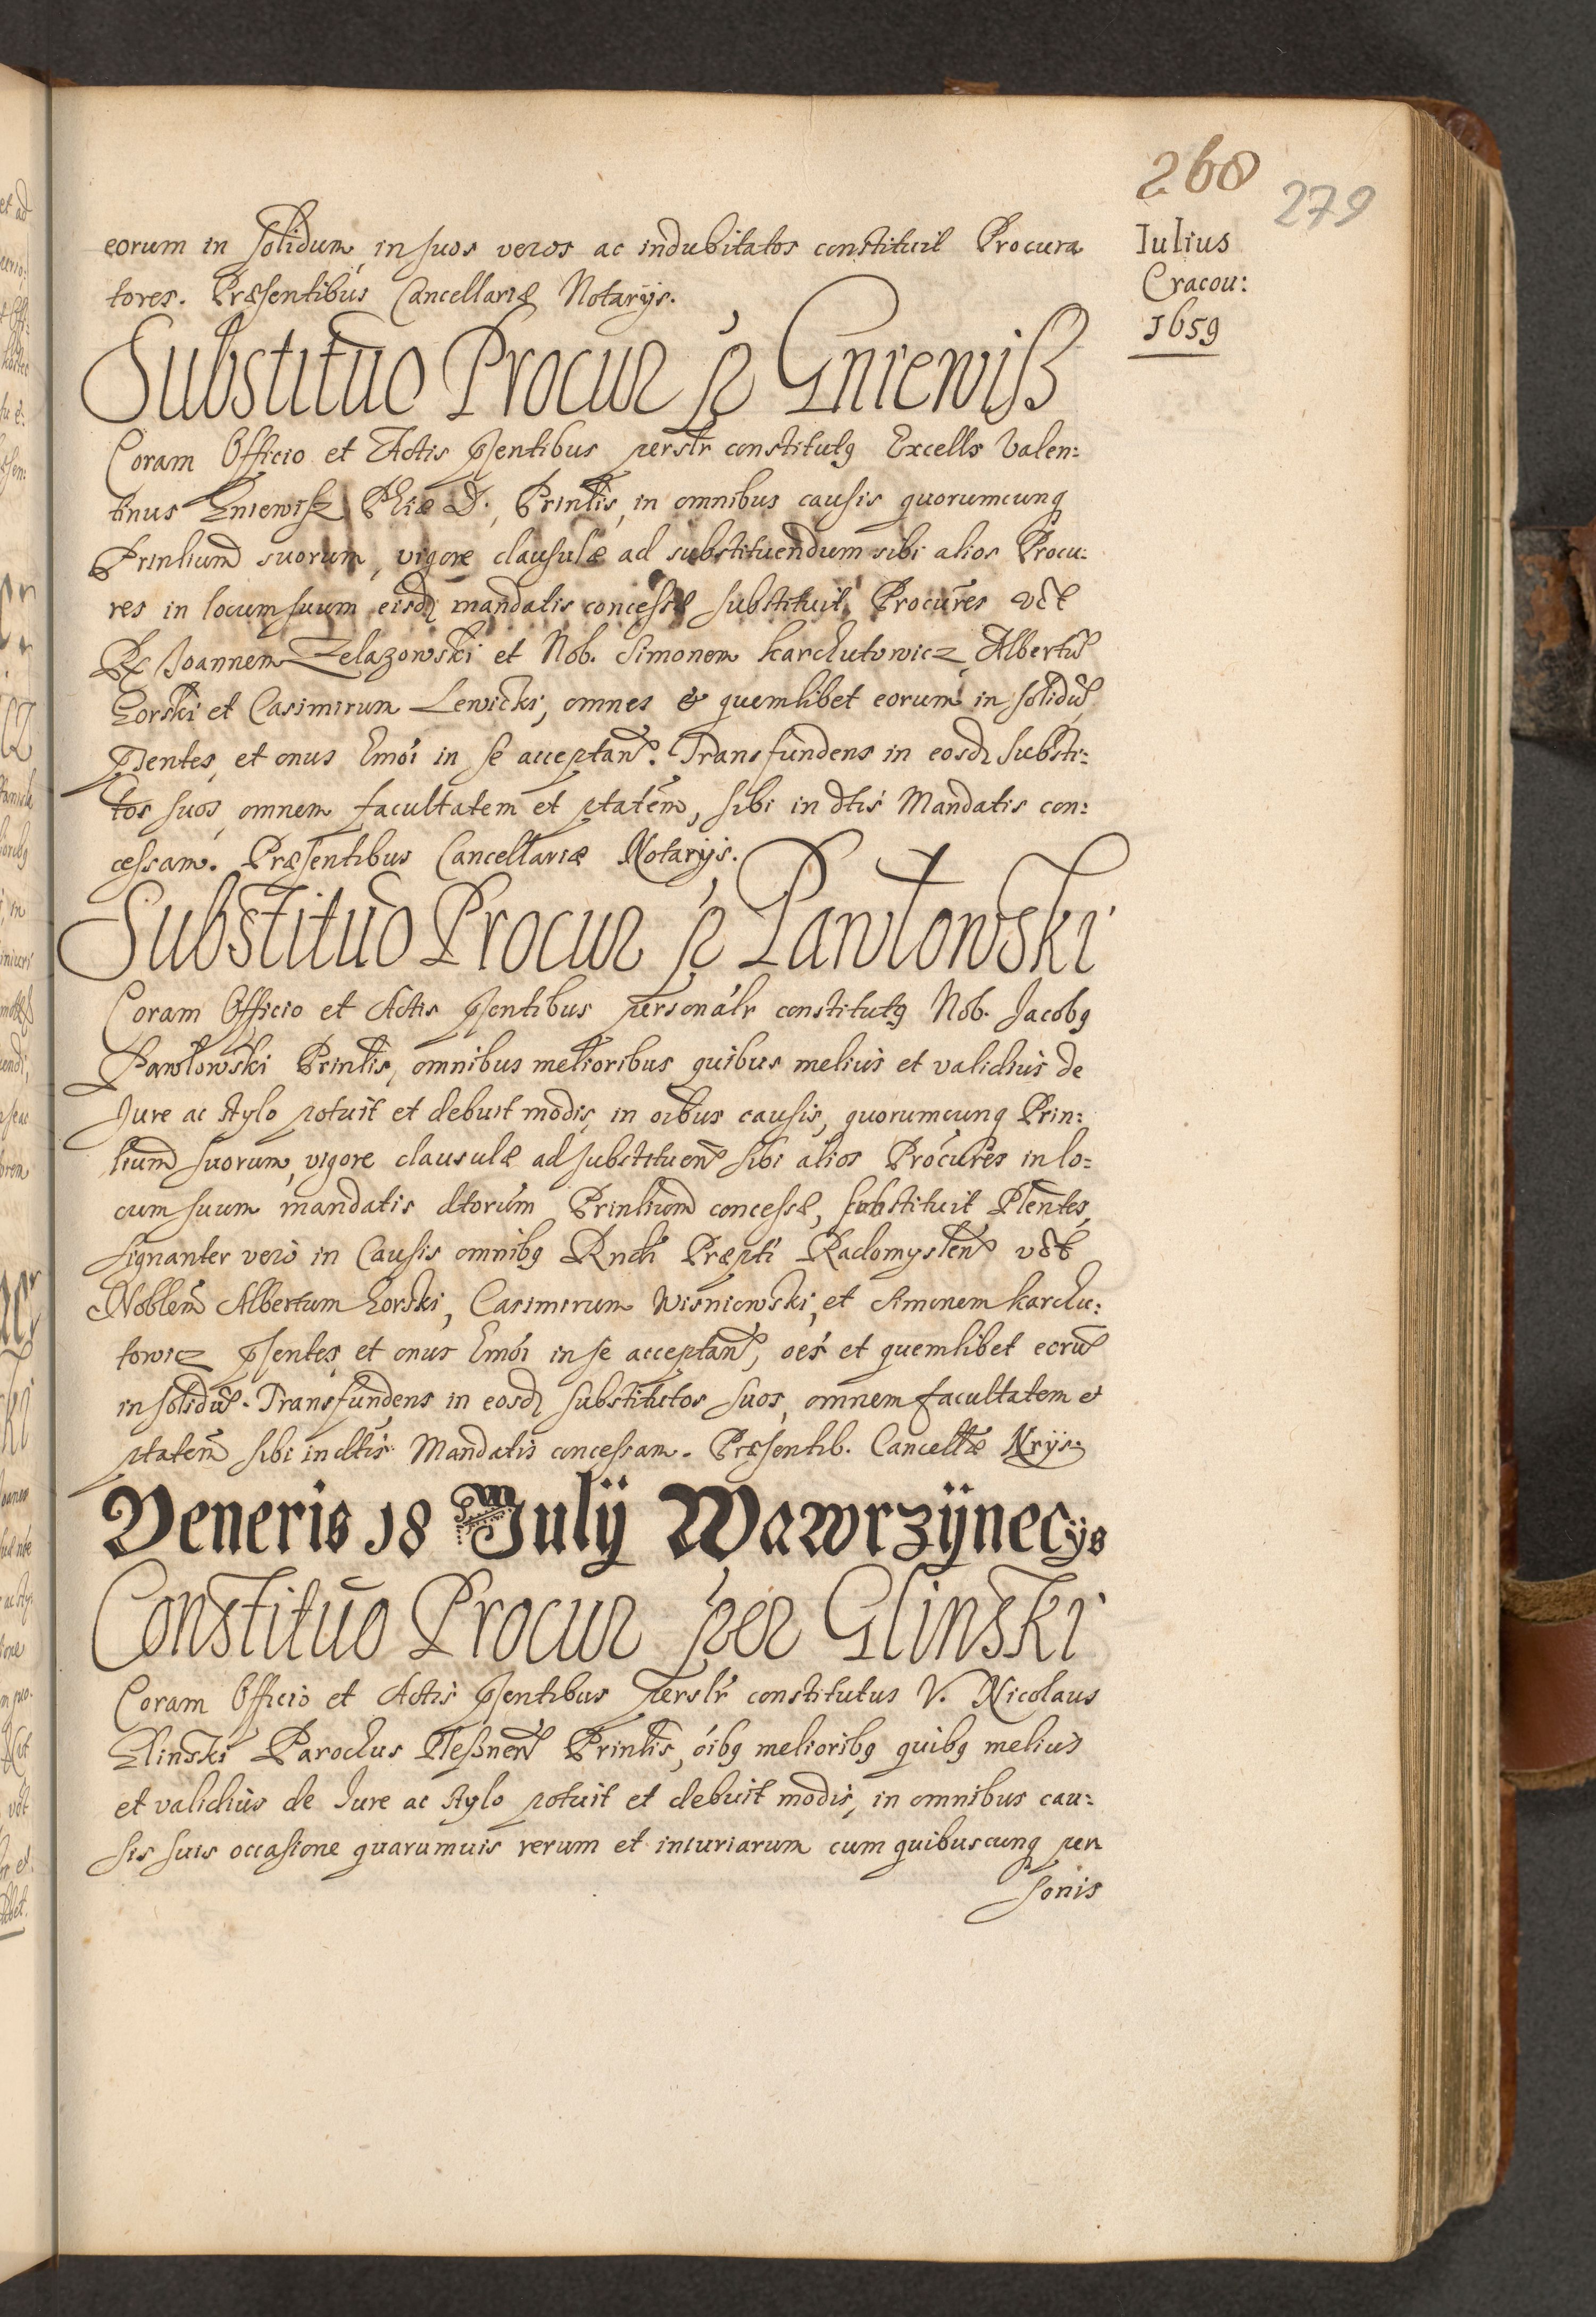 268
279
Iulius
Cracou:
1659
eorum in solidum, in suos veros ac indubitatos constituit Procura
tores. Præsentibus Cancellariæ Notarijs.
Substitutio Procur p Gniewisz
Coram Officio et Actis pñtibus persłr constitutq Excells Valen:
tinus Gniewisz Phiæ D., Prinlis, in omnibus causis quorumcunq
Prinlium suorum, vigore clausulæ ad substituendum sibi alios Procu:
res in locum suum eisd mandatis concessæ substituit Procures vdt
Rx Joannem Zelazowski et Nob. Simonem Karchutowicz, Albertũ
Gorski et Casimirum Lewicki, omnes & quemlibet eorum in solidũ,
psentes, et onus hmõi in se acceptañ. Transfundens in eosd substi:
tos suos, omnem facultatem et ptatem, sibi in dtis Mandatis con:
cessam. Præsentibus Cancellariæ Notarijs.
Substitutio Procur p Pawłowski
Coram Officio et Actis psentibus personalr constitutq Nob. Jacobq
Pawłowski Prinlis, omnibus melioribus quibus melius et validius de
Jure ac stylo potuit et debuit modis, in oibus causis, quorumcunq Prin:
lium suorum, vigore clausulæ ad substitueñ sibi alios Procures in lo:
cum suum mandatis dtorum Prinlium concessæ, substituit Plentes,
signanter vero in Causis omnibq Rndi Præpti Radomysleñ vdt
Noblem Albertum Gorski, Casimirum Wisniowski, et Simonem Karchu:
towicz psentes, et onus hmõi in se acceptañ, oes et quemlibet eorũ
in solidũ. Transfundens in eosd substitutos suos, omnem facultatem et
ptatem sibi in dtis Mandatis concessam. Præsentib. Cancellæ Nrijs.
Veneris 18 Julij Wawrzÿnecÿs
Constitutio Procur per Glinski
Coram Officio et Actis psentibus perslr constitutus V. Nicolaus
Glinski Parochus Pleszneñ Prinlis, oibq melioribq quibq melius
et validius de Iure ac stylo potuit et debuit modis, in omnibus cau:
sis suis occasione quarumuis rerum et iniuriarum cum quibuscunq per
sonis